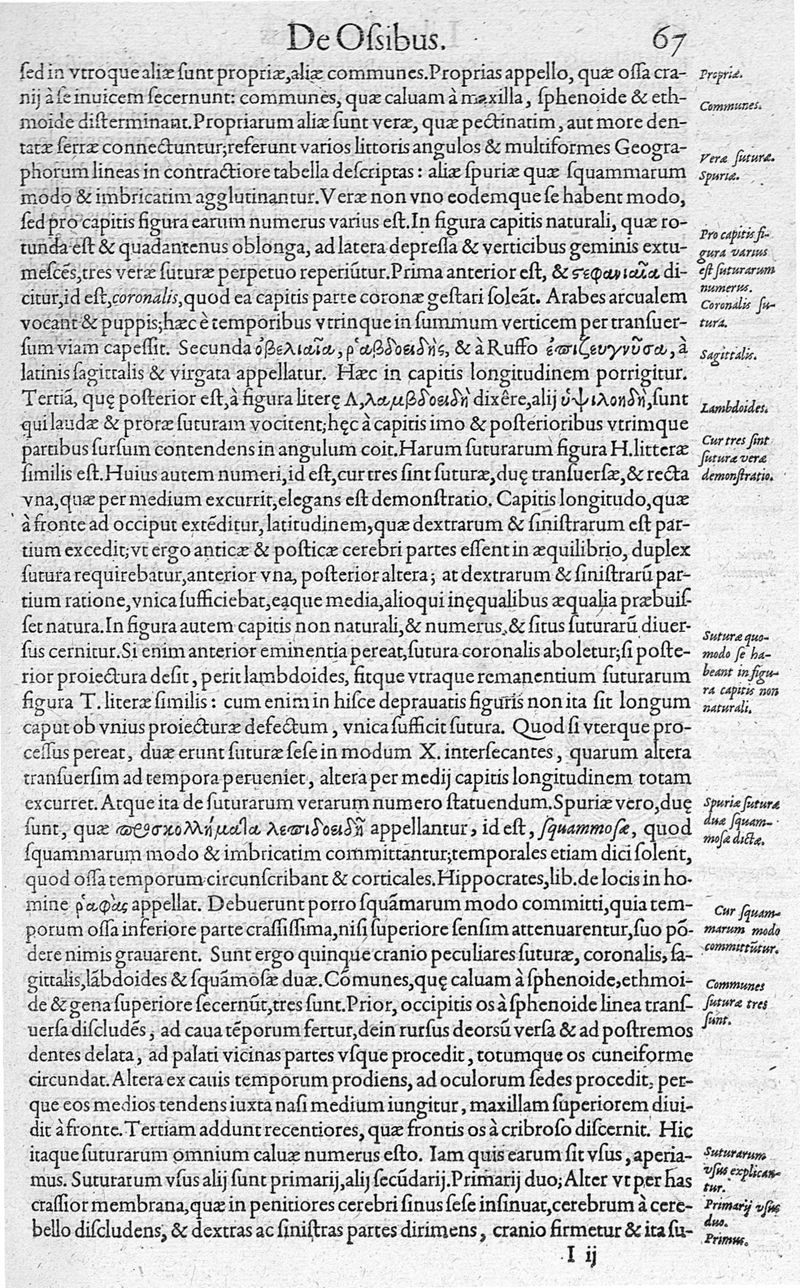 De Ossibus. 67
sed in vtroque aliæ sunt propriæ, aliæ communes. Proprias appello, quæ ossa cra-
nij à se inuicem secernunt: communes, quæ caluam à maxilla, sphenoide & eth-
moide disterminant. Propriarum aliæ sunt veræ, quæ pectinatim, aut more den-
tatæ serræ connectuntur; referunt varios littoris angulos & multiformes Geogra-
phorum lineas in contractiore tabella descriptas: aliæ spuriæ quæ squammarum
modo & imbricatim agglutinantur. Veræ non vno eodemque se habent modo,
sed pro capitis figura earum numerus varius est. In figura capitis naturali, quæ ro-
tunda est & quadantenus oblonga, ad latera depressa & verticibus geminis extu-
mescẽs, tres veræ suturæ perpetuo reperiũtur. Prima anterior est, & στεφανιαῖα di-
citur, id est, coronalis, quod ea capitis parte coronæ gestari soleãt. Arabes arcualem
vocant & puppis; hæc è temporibus vtrinque in summum verticem per transuer-
sum viam capessit. Secunda ὀβελιαῖα, ῥαβδοειδὴς, & à Ruffo ἐπιζευγνῦσα, à
latinis sagittalis & virgata appellatur. Hæc in capitis longitudinem porrigitur.
Tertiã, quę posterior est, à figura literę Λ, λαμβδοειδῆ dixêre, alij ὑψιλοηδῆ, sunt
qui laudæ & proræ suturam vocitent; hęc à capitis imo & posterioribus vtrimque
partibus sursum contendens in angulum coit. Harum suturarum figura H. litteræ
similis est. Huius autem numeri, id est, cur tres sint suturæ, duę transuersæ, & recta
vna, quæ per medium excurrit, elegans est demonstratio. Capitis longitudo, quæ
à fronte ad occiput extẽditur, latitudinem, quæ dextrarum & sinistrarum est par-
tium excedit; vt ergo anticæ & posticæ cerebri partes essent in æquilibrio, duplex
sutura requirebatur, anterior vna, posterior altera; at dextrarum & sinistrarũ par-
tium ratione, vnica sufficiebat, eaque media, alioqui inęqualibus æqualia præbuis-
set natura. In figura autem capitis non naturali, & numerus, & situs suturarũ diuer-
sus cernitur. Si enim anterior eminentia pereat, sutura coronalis aboletur; si poste-
rior proiectura desit, perit lambdoides, fitque vtraque remanentium suturarum
figura T. literæ similis: cum enim in hisce deprauatis figuris non ita sit longum
caput ob vnius proiecturæ defectum, vnica sufficit sutura. Quod si vterque pro-
cessus pereat, duæ erunt suturæ sese in modum X. intersecantes, quarum altera
transuersim ad tempora perueniet, altera per medij capitis longitudinem totam
excurret. Atque ita de suturarum verarum numero statuendum. Spuriæ vero, duę
sunt, quæ προσκολλήματα λεπιδοειδῆ appellantur, id est, squammosæ, quod
squammarum modo & imbricatim committantur; temporales etiam dici solent,
quod ossa temporum circunscribant & corticales. Hippocrates, lib. de locis in ho-
mine ῥαφὰς appellat. Debuerunt porro squãmarum modo committi, quia tem-
porum ossa inferiore parte crassissima, nisi superiore sensim attenuarentur, suo põ-
dere nimis grauarent. Sunt ergo quinque cranio peculiares suturæ, coronalis, sa-
gittalis, lãbdoides & squãmosæ duæ. Cõmunes, quę caluam à sphenoide, ethmoi-
de & gena superiore secernũt, tres sunt. Prior, occipitis os à sphenoide linea trans-
uersa discludẽs, ad caua tẽporum fertur, dein rursus deorsũ versa & ad postremos
dentes delata, ad palati vicinas partes vsque procedit, totumque os cuneiforme
circundat. Altera ex cauis temporum prodiens, ad oculorum sedes procedit, per-
que eos medios tendens iuxta nasi medium iungitur, maxillam superiorem diui-
dit à fronte. Tertiam addunt recentiores, quæ frontis os à cribroso discernit. Hic
itaque suturarum omnium caluæ numerus esto. Iam quis earum sit vsus, aperia-
mus. Suturarum vsus alij sunt primarij, alij secũdarij. Primarij duo; Alter vt per has
crassior membrana, quæ in penitiores cerebri sinus sese insinuat, cerebrum à cere-
bello discludens, & dextras ac sinistras partes dirimens, cranio firmetur & ita su-
I ij
Propriæ.
Communes.
Veræ suturæ.
Spuriæ.
Pro capitis fi-
gura varius
est suturarum
numerus.
Coronalis su-
tura.
Sagittalis.
Lambdoides.
Cur tres sint
suturæ veræ
demonstratio.
Suturæ quo-
modo se ha-
beant in figu-
ra capitis non
naturali.
Spuriæ suturæ
duæ squam-
mosæ dictæ.
Cur squam-
marum modo
committũtur.
Communes
suturæ tres
sunt.
Suturarum
vsus explican-
tur.
Primarij vsus
duo.
Primus.